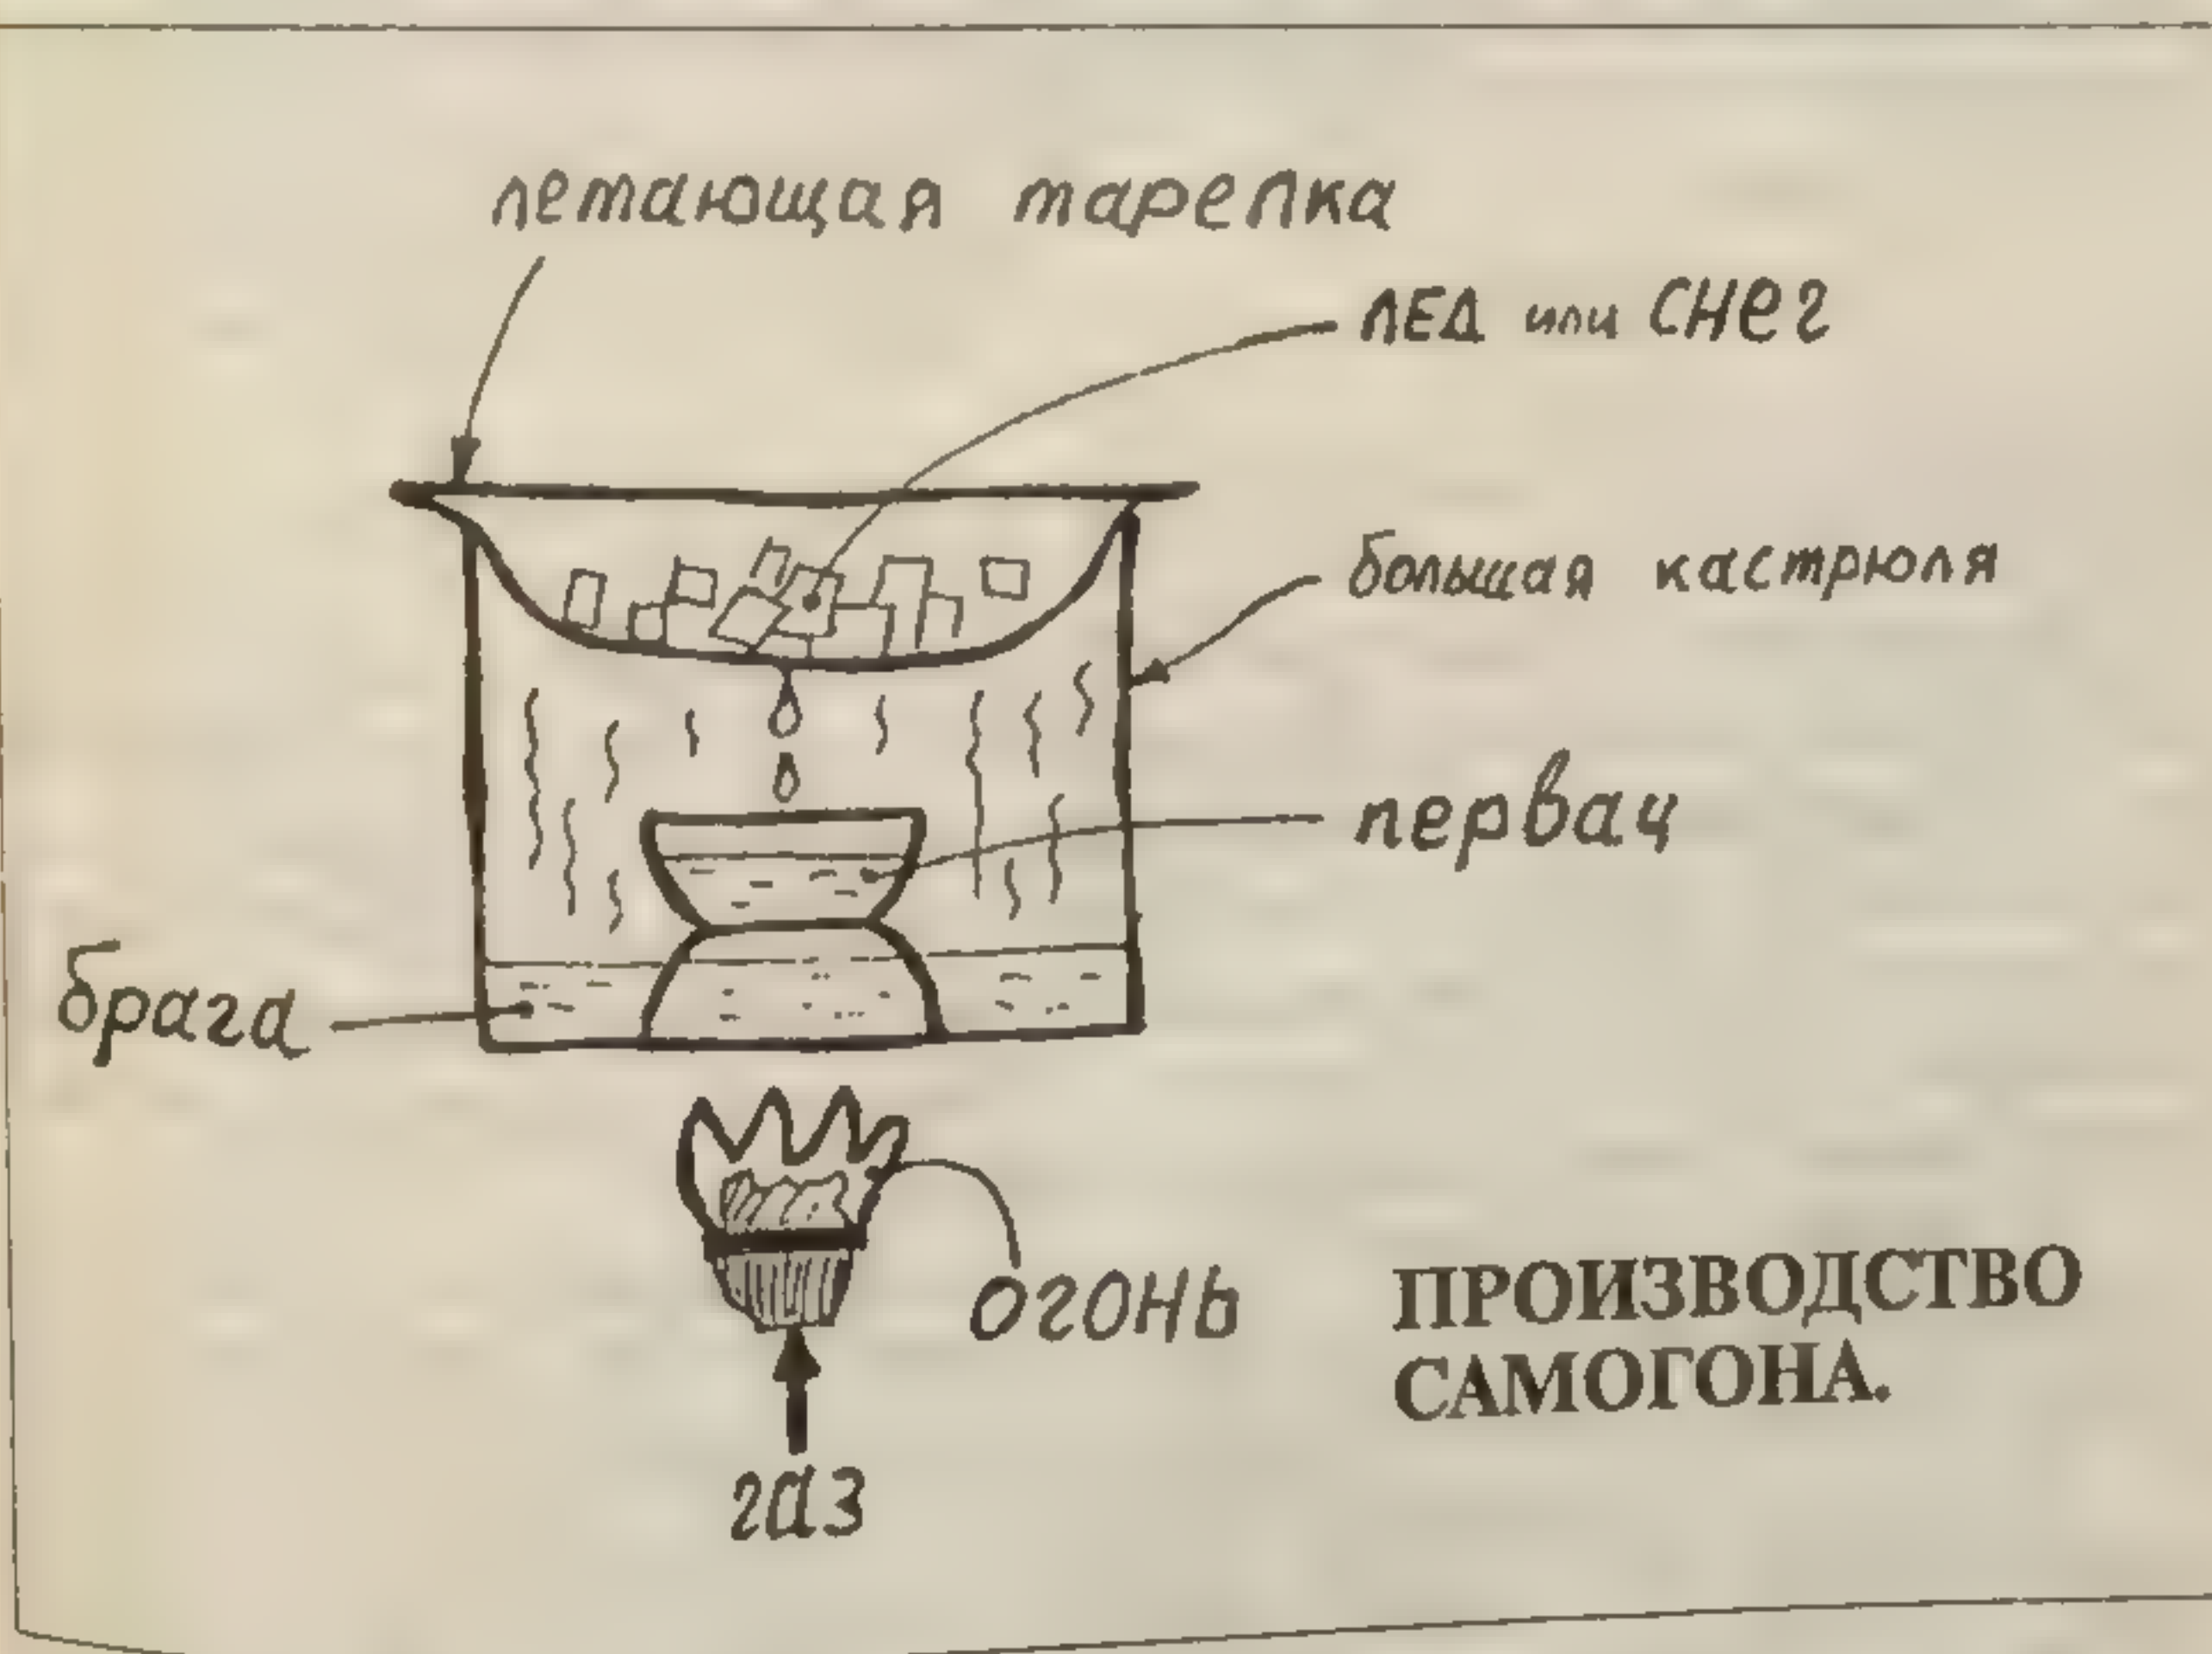 летающая тарелка
ЛЕД или СНЕГ
большая кастрюля
первач
брага
огонь
газ
ПРОИЗВОДСТВО
САМОГОНА.